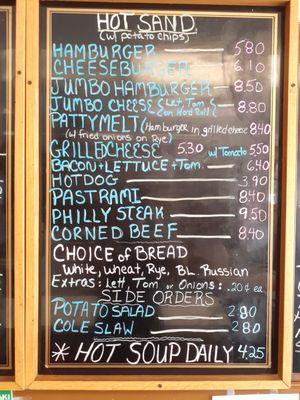 HOT SAND
(w/ potato chips)
HAMBURGER 5.80
CHEESEBURGER 6.10
JUMBO HAMBURGER 8.50
JUMBO CHEESE {Lett, Tom on Hard Roll} 8.80
PATTYMELT (Hamburger in grilled cheese 8.40
(w/ fried onions on Rye)
GRILLED CHEESE 5.30 w/ Tomato 5.50
BACON + LETTUCE + TOM 6.40
HOTDOG 3.90
PASTRAMI 8.40
PHILLY STEAK 9.50
CORNED BEEF 8.40
CHOICE of BREAD
White, Wheat, Rye, BL. Russian
Extras: Lett, Tom or Onions: .20¢ ea.
SIDE ORDERS
POTATO SALAD 2.80
COLE SLAW 2.80
* HOT SOUP DAILY 4.25